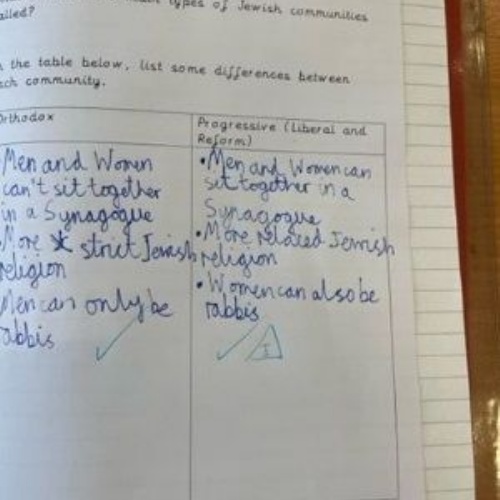 types of Jewish communities
alled?
the table below, list some differences between
ch community.
Orthodox
Progressive (Liberal and
Reform)
Men and Women
can't sit together
in a Synagogue
More strict Jewish
religion
Men can only be
rabbis
• Men and Women can
sit together in a
Synagogue
• More relaced Jewish
religion
• Women can also be
rabbis
I